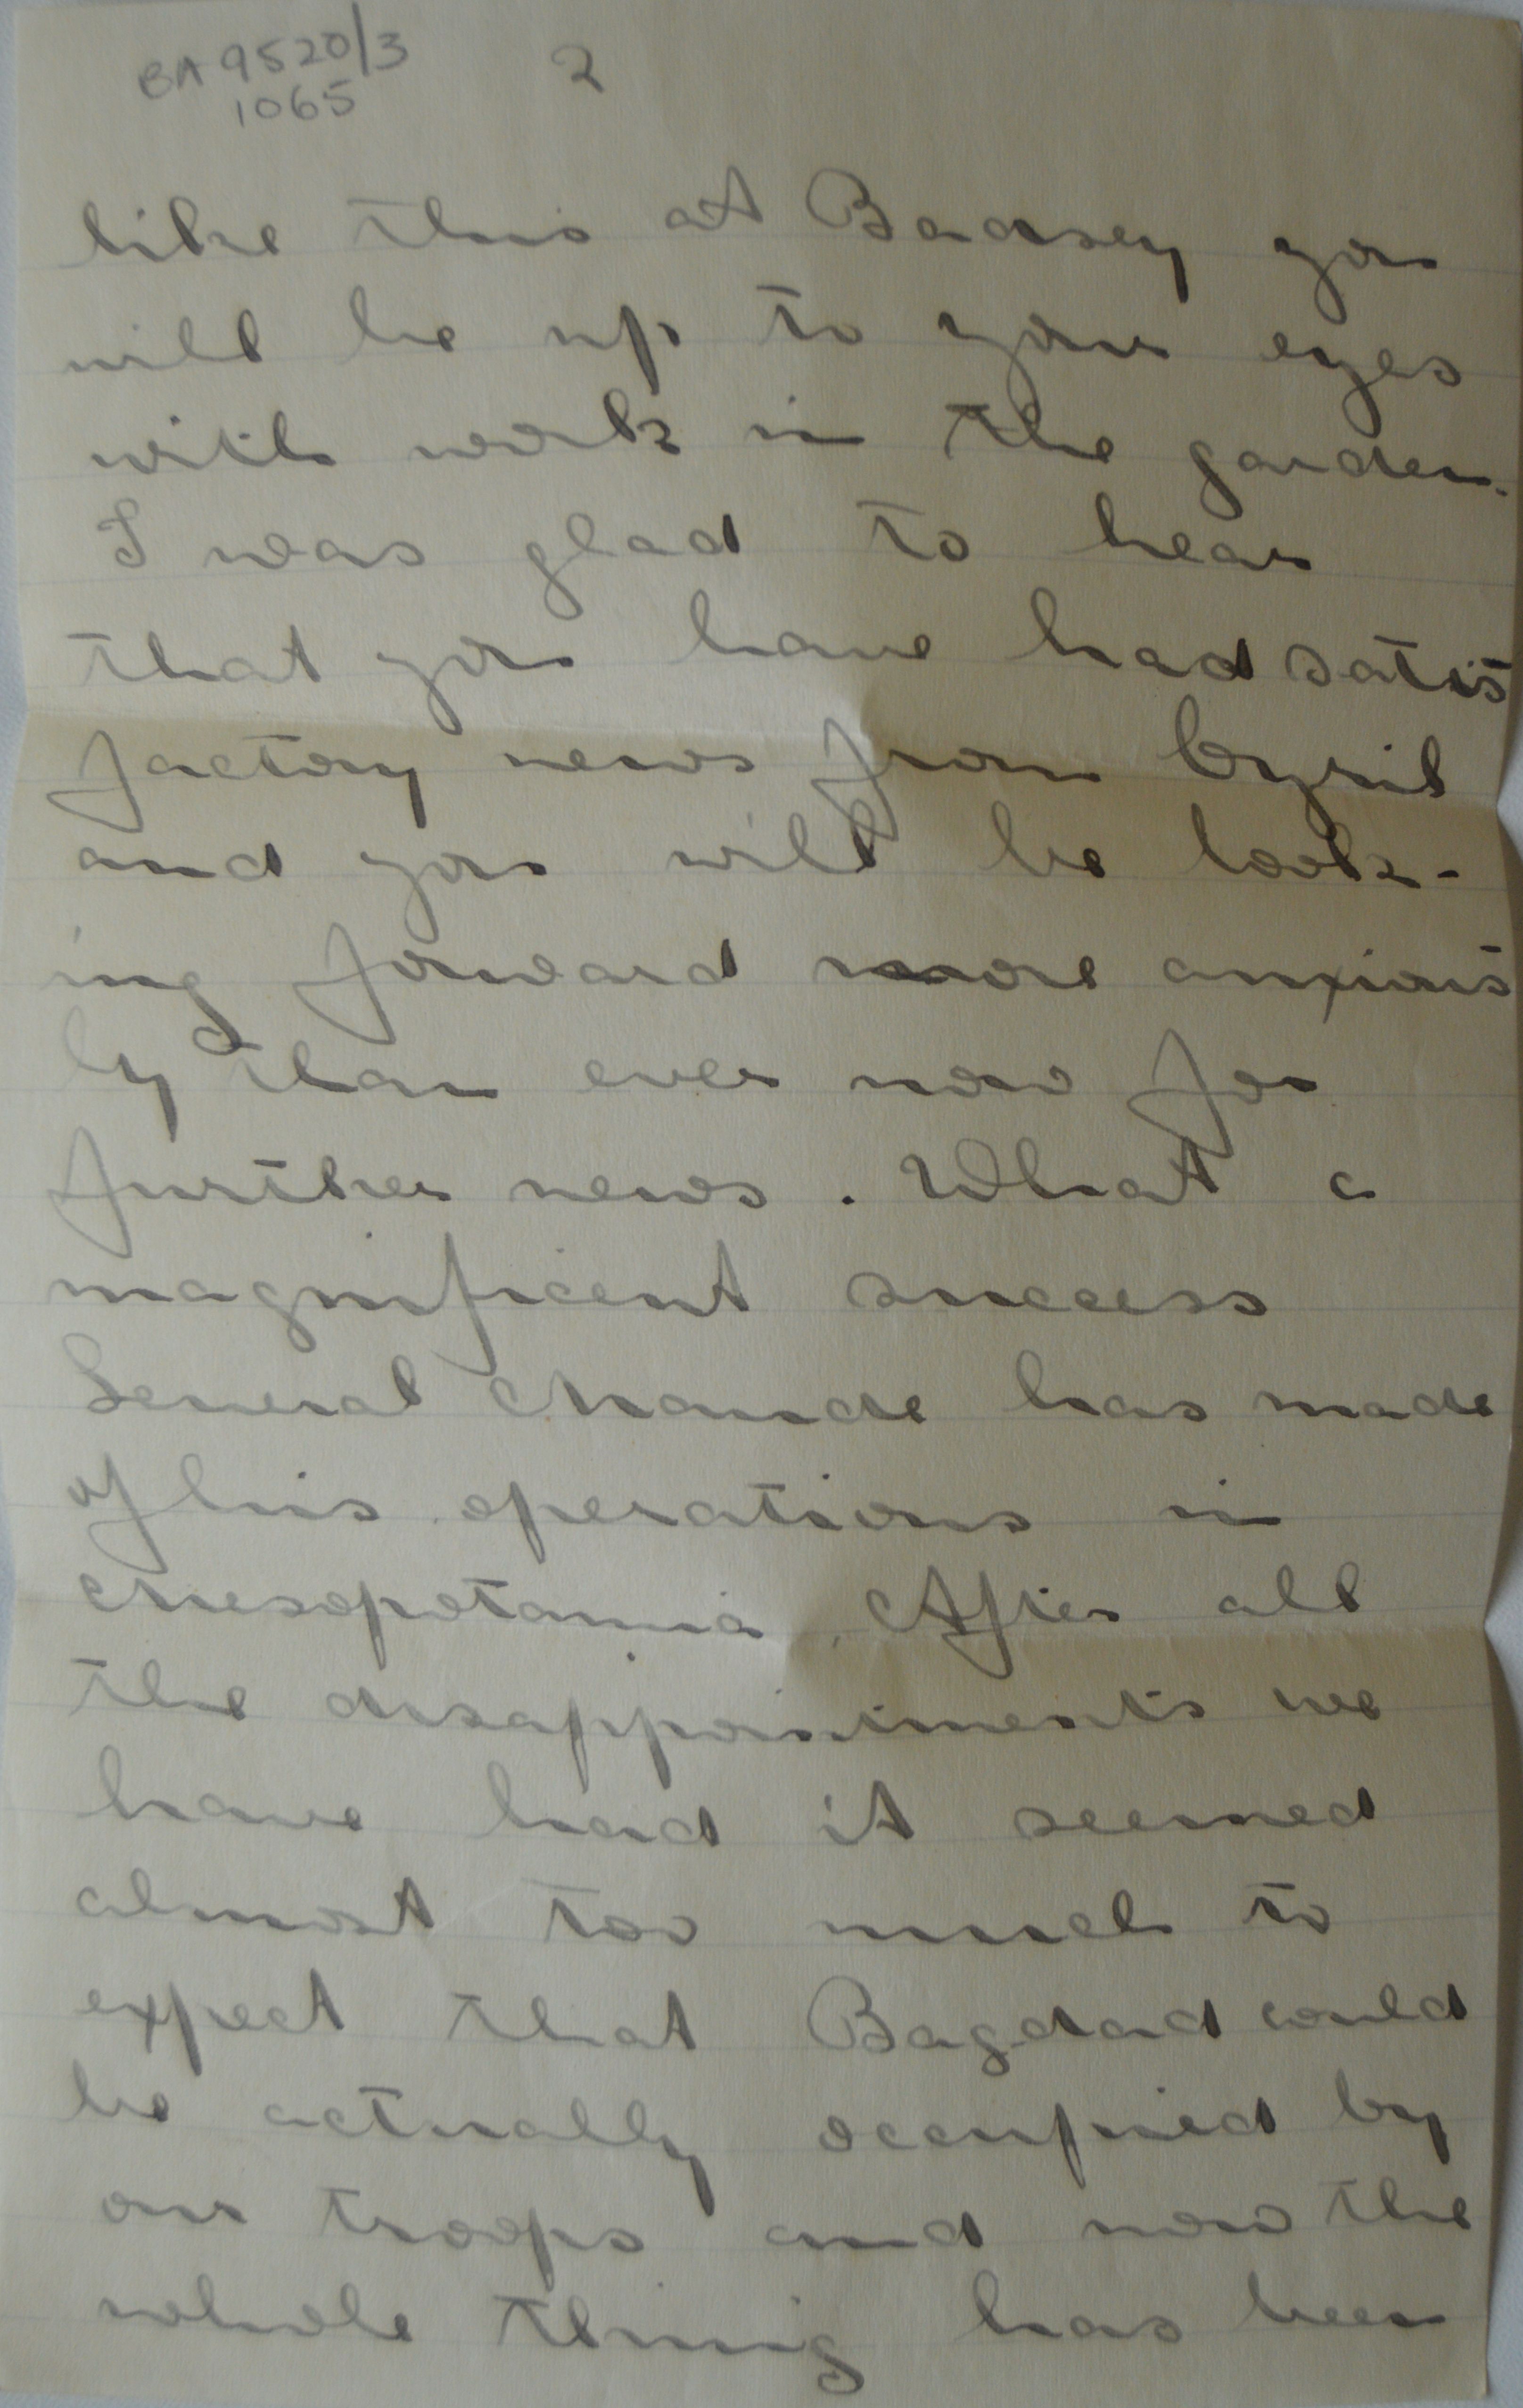 BA 9520/3
1065
2
like this at Badsey you
will be up to your eyes
with work in the garden.
I was glad to hear
that you have had satis
factory news from Cyril
and you will be look-
ing forward more anxious
ly than ever now for
further news. What a
magnificent success
General Maude has made
of his operations in
Mesopotamia. After all
the disappointments we
have had it seemed
almost too much to
expect that Bagdad would
be actually occupied by
our troops and now the
whole thing has been